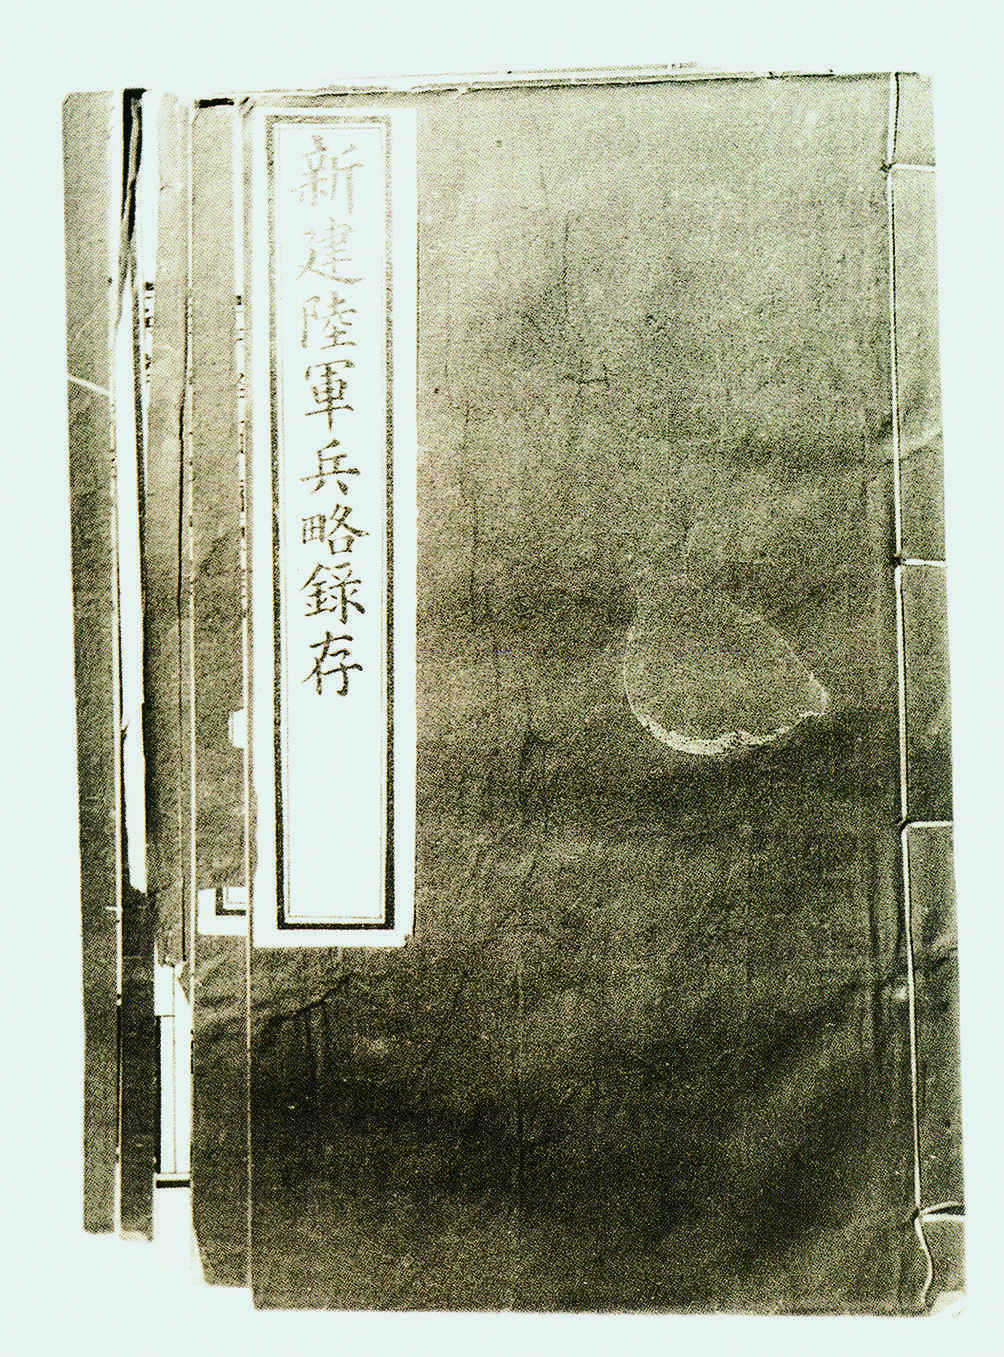 新建陸軍兵略録存